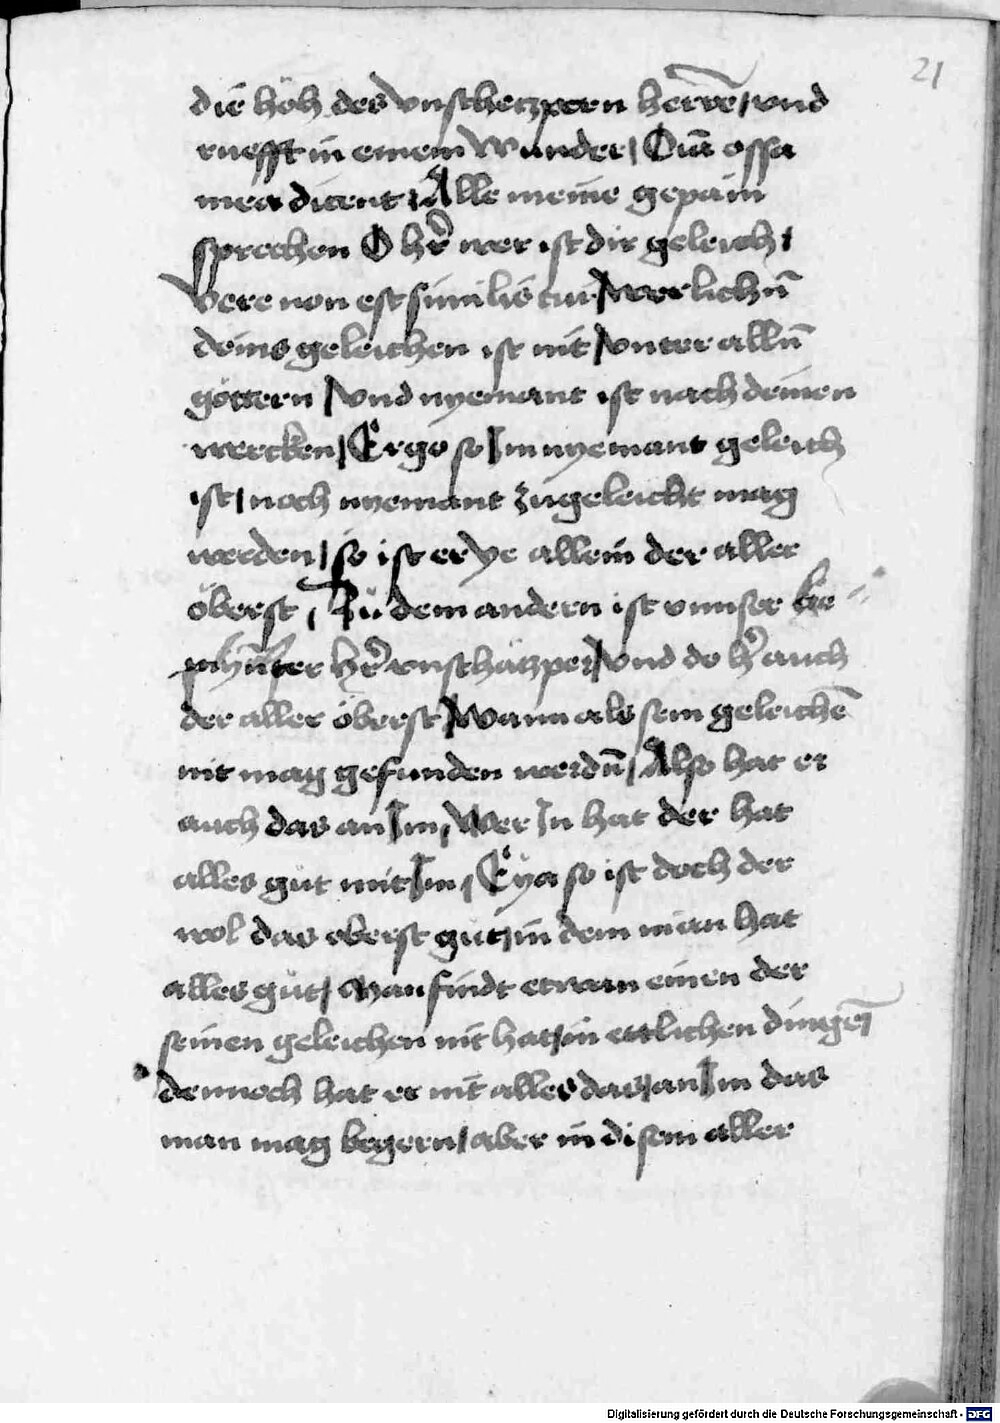 21
die höh des vnschetzpern herrē / vnd
ruefft in einem wunder / Oīa ossa
mea dicent / Alle meine gepain
sprechen O hr̄ wer ist dir geleich /
Vere non est similis tui / werlichn̄
deins geleichen ist nit / vnter alln̄
göttern / vnd nyemant ist nach deinen
wercken / Ergo so Im nyemant geleich
ist / noch nyemant zugeleicht mag
werden / so ist er ye allein der aller
öberst / Zu dem andern ist vnnser
hr̄ vnschätzper / vnd do h̄r auch
der aller öberst / Wann als sein geleichē
nit mag gefunden werdn̄ / Also hat er
auch das an Im / Wer In hat der hat
alles gut mit Im / Eya so ist doch der
wol das oberst gut / in dem man hat
alles gut / Man findt etwan einen der
seinen geleichen nit hat / in ettlichen dingē
dennoch hat er nit alles das / an Im das
man mag begern / aber in disem aller
Digitalisierung gefördert durch die Deutsche Forschungsgemeinschaft - DFG